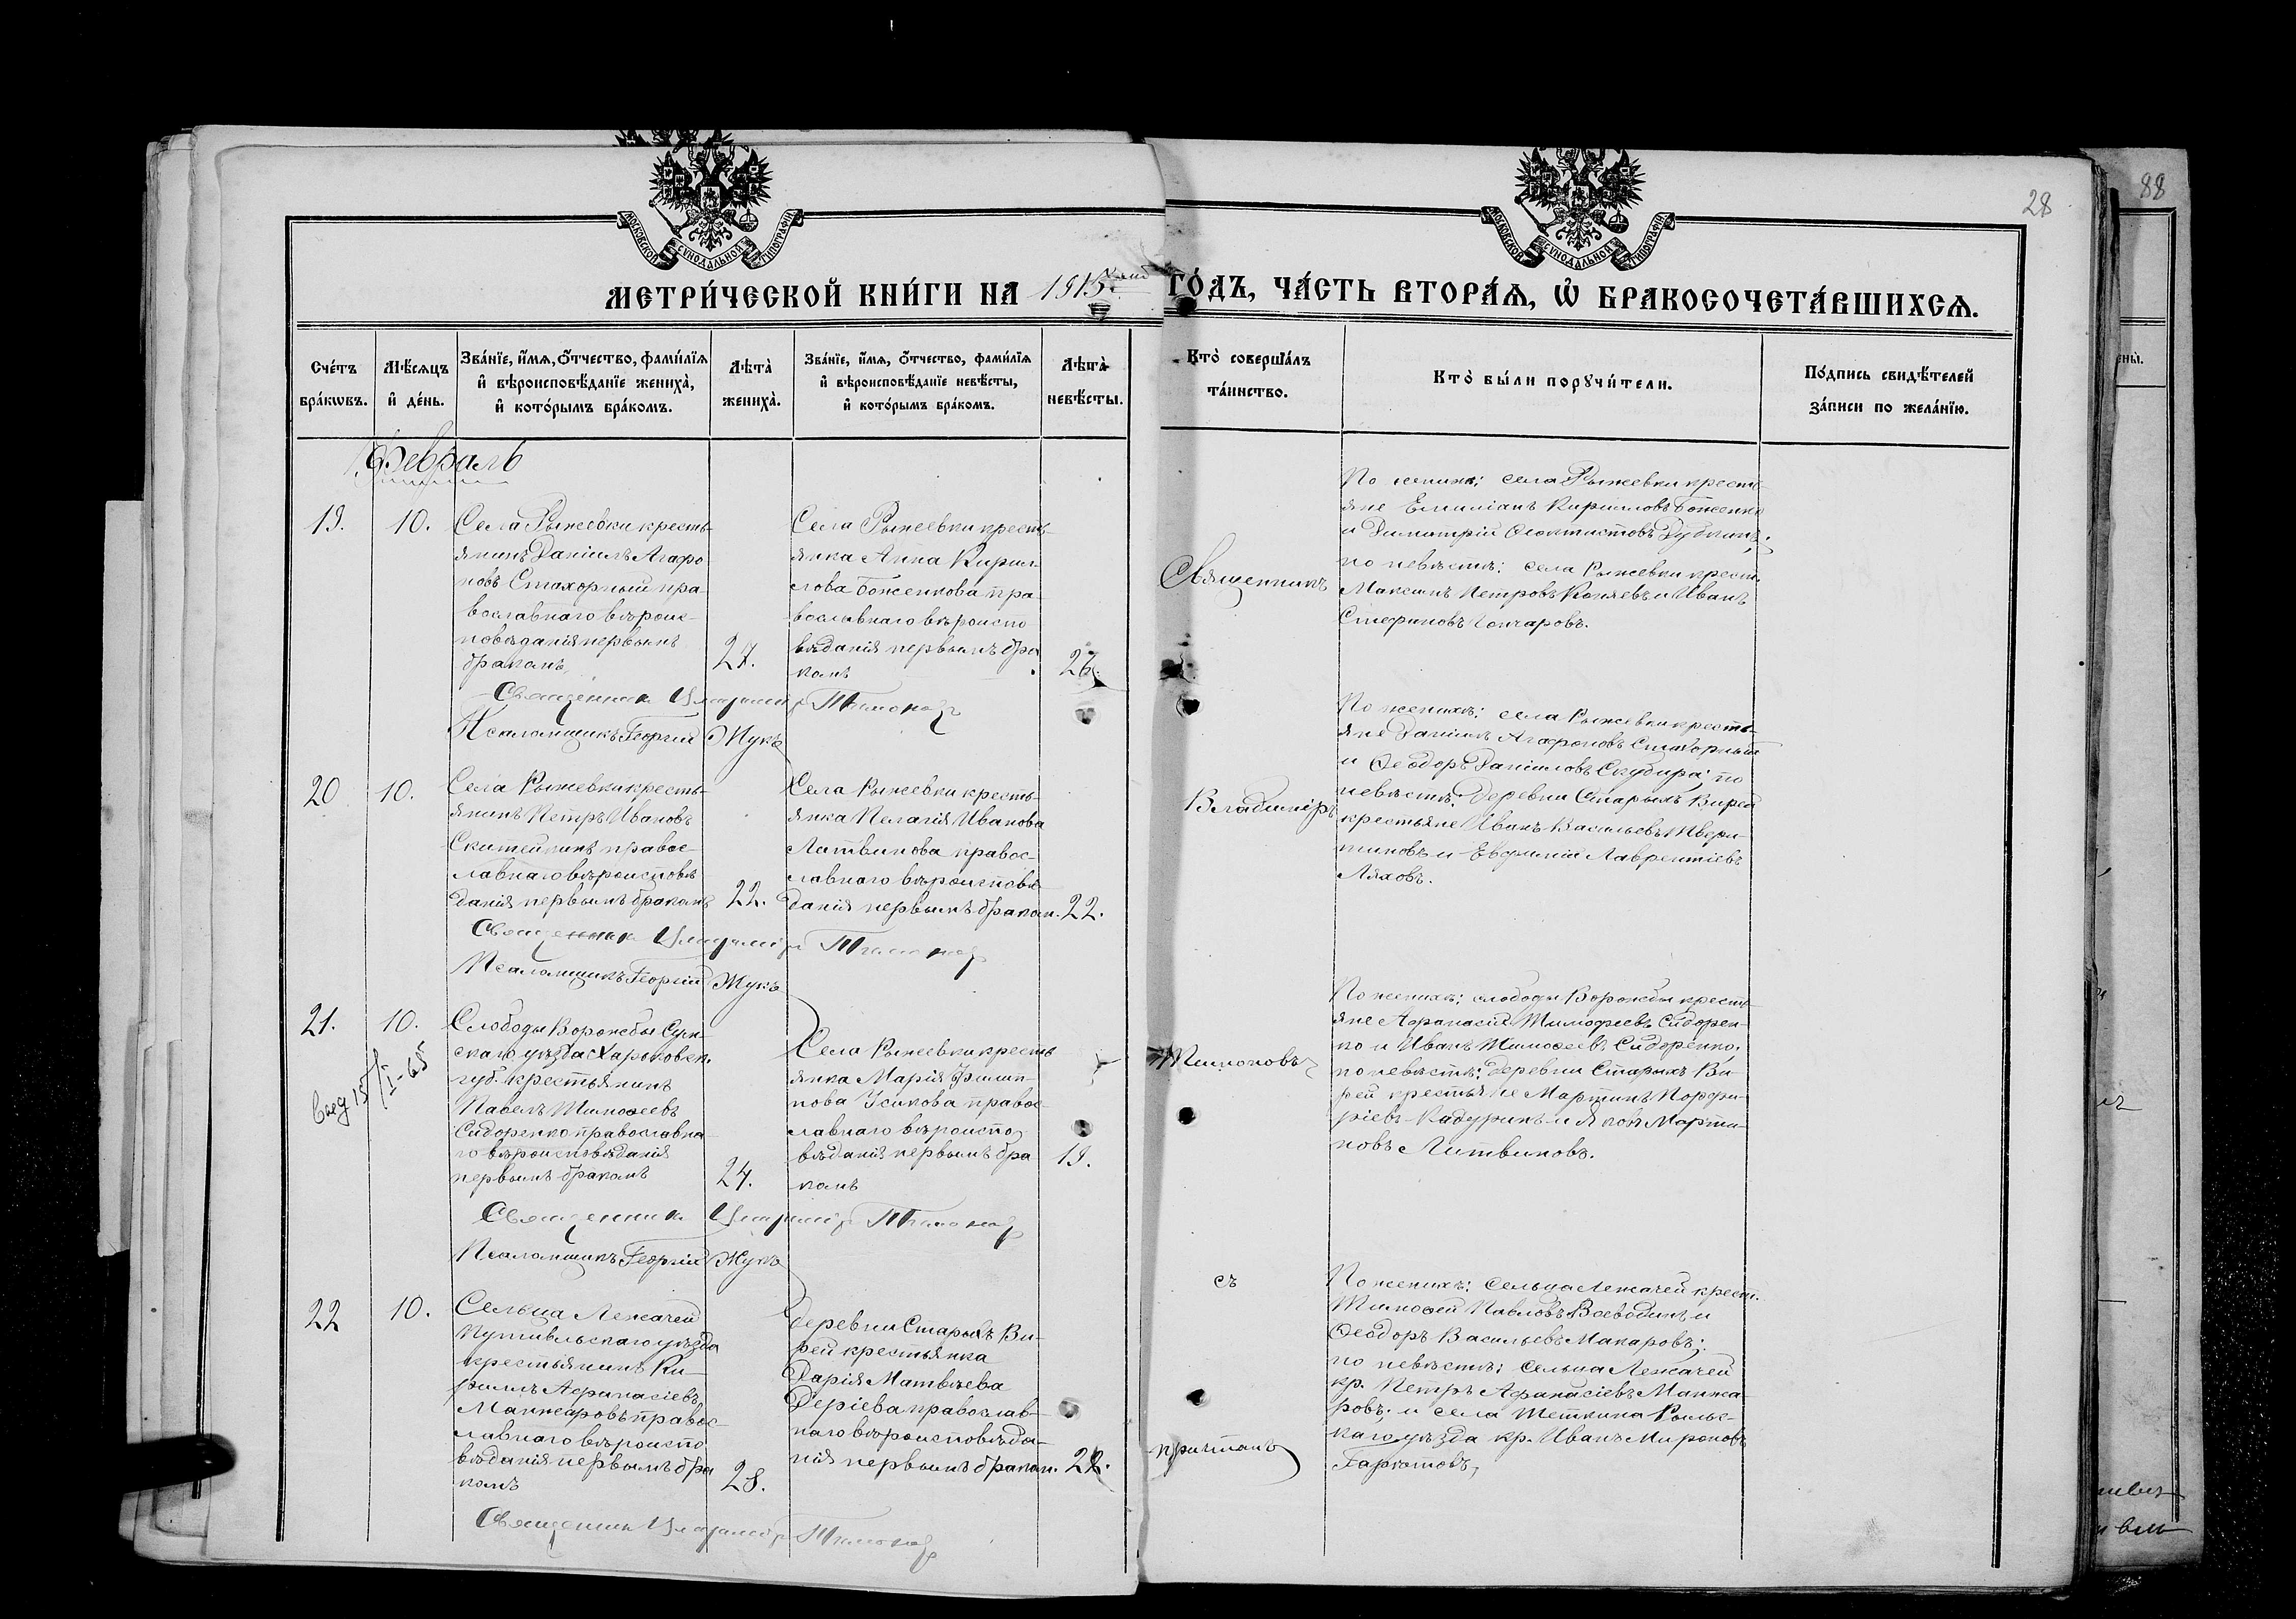 28
88
МОСКОВСКОЙ СѴНОДАЛЬНОЙ ТИПОГРАФІИ
МОСКОВСКОЙ СѴНОДАЛЬНОЙ ТИПОГРАФІИ
МЕТРИ́ЧЕСКОЙ КНИ́ГИ НА 1915 ГО́ДЪ, ЧА́СТЬ ВТОРА́Ѧ, Ѡ҆ БРАКОСОЧЕТА́ВШИХСѦ.
Сче́тъ
бра́кѡвъ.
Мѣ́сѧцъ
и҆ де́нь.
Зва́нїе, и҆́мѧ, ѻ҆́тчество, фами́лїѧ
и҆ вѣроисповѣ́данїе жениха̀,
и҆ кото́рымъ бра́комъ.
Лѣ́та̀
жениха̀.
Зва́нїе, и҆́мѧ, ѻ҆́тчество, фами́лїѧ
и҆ вѣроисповѣ́данїе невѣ́сты,
и҆ кото́рымъ бра́комъ.
Лѣ́та̀
невѣ́сты.
Кто̀ соверша́лъ
та́инство.
Кто̀ бы́ли порꙋчи́тели.
По́дпись свидѣ́телей
за́писи по жела́нїю.
Февраль
19.
10.
Села Рыжевки кресть-
янинъ Даніилъ Агафо
новъ Стахорный пра-
вославнаго вѣроис-
повѣданія первымъ
бракомъ
27.
Села Рыжевки кресть-
янка Анна Кирил-
лова Боженкова пра-
вославнаго вѣроиспо
вѣданія первымъ бра
комъ
26.
Священникъ Владиміръ Тимоновъ
Псаломщикъ Георгій Жукъ
Священникъ
По женихѣ: села Рыжевки кресть-
яне Емиліанъ Кирилловъ Боженко
и Димитрій Ѳеоктистовъ
по невѣстѣ: села Рыжевки крест.
Максимъ Петровъ и Иванъ
Стефановъ Гончаровъ.
20
10.
Села Рыжевки кресть-
янинъ Петръ Ивановъ
Скитейкинъ правос-
лавнаго вѣроисповѣ
данія первымъ бракомъ
22.
Села Рыжевки кресть-
янка Пелагія Иванова
Литвинова правос-
лавнаго вѣроисповѣ-
данія первымъ браком.
22.
Священникъ Владиміръ Тимоновъ
Псаломщикъ Георгій Жукъ
Владиміръ
По женихѣ: села Рыжевки кресть-
яне Даніилъ Агафоновъ Стахорный
и Ѳеодоръ Даніиловъ Скубира; по
невѣстѣ: деревни Старыхъ Вирей
крестьяне Иванъ Васильевъ Твери-
тиновъ и Евфимій Лаврентіевъ
Ляховъ.
21.
10.
Слободы Ворожбы Сум-
скаго уѣзда Харьковск.
губ. крестьянинъ
Павелъ Тимоѳеевъ
Сидоренко православна-
го вѣроисповѣданія
первымъ бракомъ
24.
Села Рыжевки кресть
янка Марія Филип-
пова Усикова правос-
лавнаго вѣроиспо
вѣданія первымъ бра
комъ
19.
Священникъ Владиміръ Тимоновъ
Псаломщикъ Георгій Жукъ
Тимоновъ
По женихѣ: слободы Ворожбы кресть-
яне Афанасій Тимофеевъ Сидорен-
ко и Иванъ Тимоѳеевъ Сидоренко;
по невѣстѣ: деревни Старыхъ Ви-
рей крестьяне Мартинъ Порфи-
ріевъ Кадуринъ и Яковъ Марти-
новъ Литвиновъ.
22
10.
Сельца Лежачей
Путивльскаго уѣзда
крестьянинъ Ки-
риллъ Афанасіевъ
Манжаровъ правос-
лавнаго вѣроиспо
вѣданія первымъ бра
комъ
28.
Деревни Старыхъ Ви-
рей крестьянка
Дарія Матвѣева
Деріева православ-
наго вѣроисповѣда-
нія первымъ браком.
22.
Священникъ Владиміръ Тимоновъ
съ
причтомъ
По женихѣ: сельца Лежачей крест.
Тимоѳей Павловъ Воеводинъ и
Ѳеодоръ Васильевъ Макаровъ;
по невѣстѣ: сельца Лежачей
кр. Петръ Афанасіевъ Манжа-
ровъ; и села Теткина Рыльс-
каго уѣзда кр. Иванъ Мироновъ